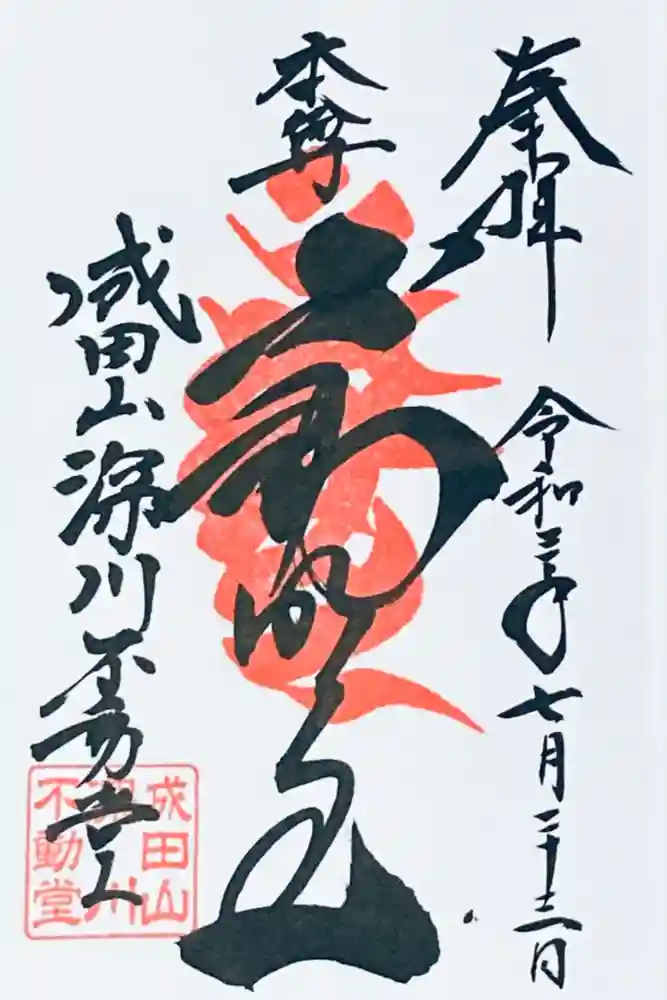 奉拝
令和三年七月二十三日
本尊
不動明王
成田山深川不動堂
成田山
深川
不動堂